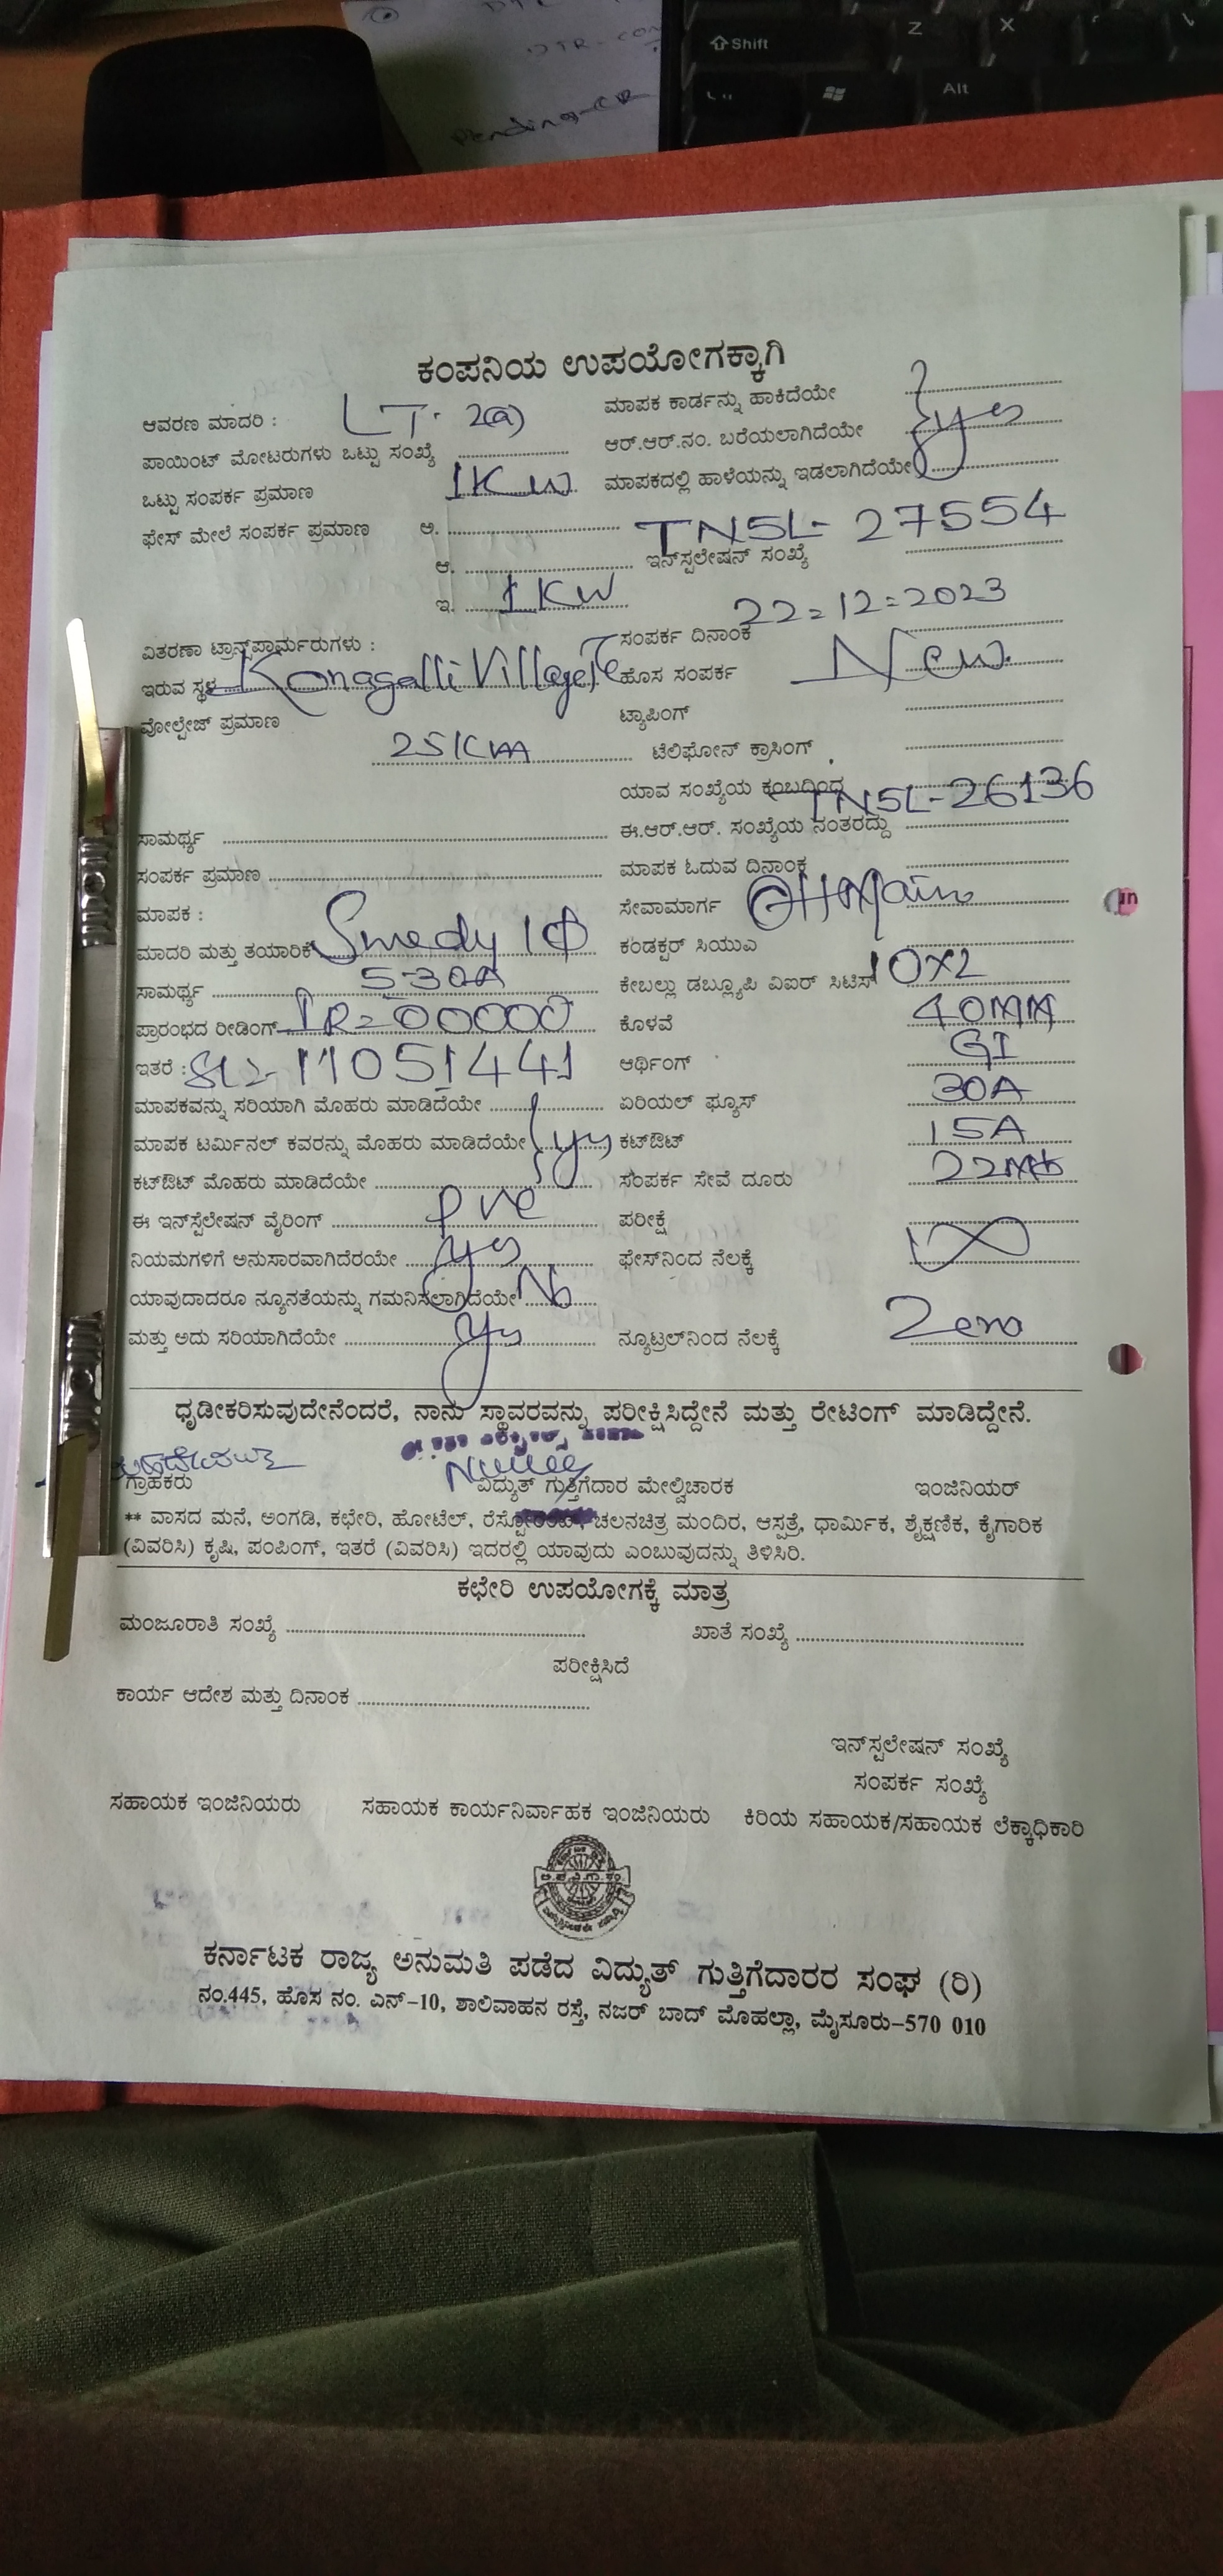 Shift
Z
X
Alt
Pending-CR
ಕಂಪನಿಯ ಉಪಯೋಗಕ್ಕಾಗಿ
ಆವರಣ ಮಾದರಿ : LT. 2(a)
ಮಾಪಕ ಕಾರ್ಡನ್ನು ಹಾಕಿದೆಯೇ
ಪಾಯಿಂಟ್ ಮೋಟರುಗಳು ಒಟ್ಟು ಸಂಖ್ಯೆ
ಆರ್.ಆರ್.ನಂ. ಬರೆಯಲಾಗಿದೆಯೇ yes
ಒಟ್ಟು ಸಂಪರ್ಕ ಪ್ರಮಾಣ 1KW
ಮಾಪಕದಲ್ಲಿ ಹಾಳೆಯನ್ನು ಇಡಲಾಗಿದೆಯೇ
ಫೇಸ್ ಮೇಲೆ ಸಂಪರ್ಕ ಪ್ರಮಾಣ ಅ.
TN5L- 27554
ಆ.
ಇನ್‌ಸ್ಟಲೇಷನ್ ಸಂಖ್ಯೆ
ಇ. 1KW
22=12=2023
ವಿತರಣಾ ಟ್ರಾನ್ಸ್‌ಫಾರ್ಮರುಗಳು :
ಸಂಪರ್ಕ ದಿನಾಂಕ
ಇರುವ ಸ್ಥಳ Konagalli Village
ಹೊಸ ಸಂಪರ್ಕ New.
ವೋಲ್ಟೇಜ್ ಪ್ರಮಾಣ
ಟ್ಯಾಪಿಂಗ್
25KVA
ಟೆಲಿಫೋನ್ ಕ್ರಾಸಿಂಗ್
ಯಾವ ಸಂಖ್ಯೆಯ ಕಂಬದಿಂದ TN5L-26136
ಸಾಮರ್ಥ್ಯ
ಈ.ಆರ್.ಆರ್. ಸಂಖ್ಯೆಯ ನಂತರದ್ದು
ಸಂಪರ್ಕ ಪ್ರಮಾಣ
ಮಾಪಕ ಓದುವ ದಿನಾಂಕ
ಮಾಪಕ :
ಸೇವಾಮಾರ್ಗ OH Main
ಮಾದರಿ ಮತ್ತು ತಯಾರಿಕೆ 1Φ
ಕಂಡಕ್ಟರ್ ಸಿಯುಎ
ಸಾಮರ್ಥ್ಯ 5-30A
ಕೇಬಲ್ಲು ಡಬ್ಲ್ಯೂಪಿ ವಿಐರ್ ಸಿಟಿಸ್ 10X2
ಪ್ರಾರಂಭದ ರೀಡಿಂಗ್ IR=00000
ಕೊಳವೆ 40MM
ಇತರೆ : Sl= 11051441
ಆರ್ಥಿಂಗ್ GI
ಮಾಪಕವನ್ನು ಸರಿಯಾಗಿ ಮೊಹರು ಮಾಡಿದೆಯೇ
ಏರಿಯಲ್ ಫ್ಯೂಸ್ 30A
ಮಾಪಕ ಟರ್ಮಿನಲ್ ಕವರನ್ನು ಮೊಹರು ಮಾಡಿದೆಯೇ yes
ಕಟ್‌ಔಟ್ 15A
ಕಟ್‌ಔಟ್ ಮೊಹರು ಮಾಡಿದೆಯೇ
ಸಂಪರ್ಕ ಸೇವೆ ದೂರು 22Mt
ಈ ಇನ್‌ಸ್ಟಲೇಷನ್ ವೈರಿಂಗ್ PVC
ಪರೀಕ್ಷೆ
ನಿಯಮಗಳಿಗೆ ಅನುಸಾರವಾಗಿದೆರಯೇ yes
ಫೇಸ್‌ನಿಂದ ನೆಲಕ್ಕೆ ∞
ಯಾವುದಾದರೂ ನ್ಯೂನತೆಯನ್ನು ಗಮನಿಸಲಾಗಿದೆಯೇ No
ಮತ್ತು ಅದು ಸರಿಯಾಗಿದೆಯೇ yes
ನ್ಯೂಟ್ರಲ್‌ನಿಂದ ನೆಲಕ್ಕೆ Zero
ಧೃಡೀಕರಿಸುವುದೇನೆಂದರೆ, ನಾನು ಸ್ಥಾವರವನ್ನು ಪರೀಕ್ಷಿಸಿದ್ದೇನೆ ಮತ್ತು ರೇಟಿಂಗ್ ಮಾಡಿದ್ದೇನೆ.
ಗ್ರಾಹಕರು
ವಿದ್ಯುತ್ ಗುತ್ತಿಗೆದಾರ ಮೇಲ್ವಿಚಾರಕ
ಇಂಜಿನಿಯರ್
** ವಾಸದ ಮನೆ, ಅಂಗಡಿ, ಕಛೇರಿ, ಹೋಟೆಲ್, ಚಲನಚಿತ್ರ ಮಂದಿರ, ಆಸ್ಪತ್ರೆ, ಧಾರ್ಮಿಕ, ಶೈಕ್ಷಣಿಕ, ಕೈಗಾರಿಕ
(ವಿವರಿಸಿ) ಕೃಷಿ, ಪಂಪಿಂಗ್, ಇತರೆ (ವಿವರಿಸಿ) ಇದರಲ್ಲಿ ಯಾವುದು ಎಂಬುವುದನ್ನು ತಿಳಿಸಿರಿ.
ಕಛೇರಿ ಉಪಯೋಗಕ್ಕೆ ಮಾತ್ರ
ಮಂಜೂರಾತಿ ಸಂಖ್ಯೆ
ಖಾತೆ ಸಂಖ್ಯೆ
ಪರೀಕ್ಷಿಸಿದೆ
ಕಾರ್ಯ ಆದೇಶ ಮತ್ತು ದಿನಾಂಕ
ಇನ್‌ಸ್ಟಲೇಷನ್ ಸಂಖ್ಯೆ
ಸಂಪರ್ಕ ಸಂಖ್ಯೆ
ಸಹಾಯಕ ಇಂಜಿನಿಯರು
ಸಹಾಯಕ ಕಾರ್ಯನಿರ್ವಾಹಕ ಇಂಜಿನಿಯರು
ಕಿರಿಯ ಸಹಾಯಕ/ಸಹಾಯಕ ಲೆಕ್ಕಾಧಿಕಾರಿ
ಕರ್ನಾಟಕ ರಾಜ್ಯ ಅನುಮತಿ ಪಡೆದ ವಿದ್ಯುತ್ ಗುತ್ತಿಗೆದಾರರ ಸಂಘ (ರಿ)
ನಂ.445, ಹೊಸ ನಂ. ಎನ್-10, ಶಾಲಿವಾಹನ ರಸ್ತೆ, ನಜರ್ ಬಾದ್ ಮೊಹಲ್ಲಾ, ಮೈಸೂರು-570 010